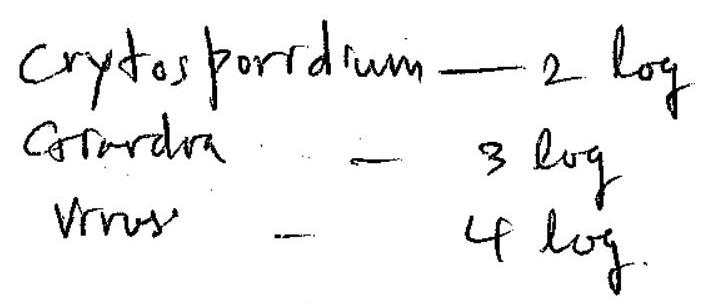 Crytosporidium — 2 log
Giardia - 3 log
Virus - 4 log.